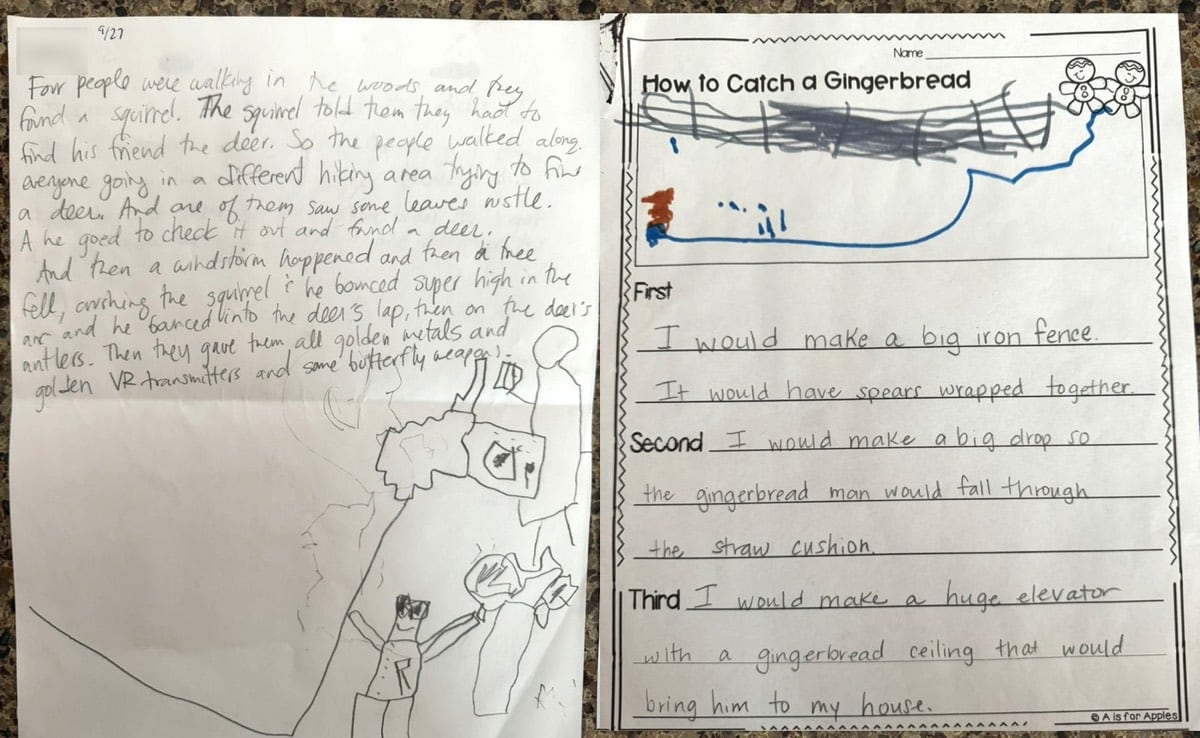 9/27
Four people were walking in the woods and they
found a squirrel. The squirrel told them they had to
find his friend the deer. So the people walked along.
everyone going in a different hiking area trying to find
a deer. And one of them saw some leaves rustle.
A he goed to check it out and found a deer.
And then a windstorm happened and then a tree
fell, crushing the squirrel & he bounced super high in the
air and he bounced into the deer's lap, then on the deer's
antlers. Then they gave them all golden metals and
golden VR transmitters and some butterfly weapons.
R
Name
How to Catch a Gingerbread
First
I would make a big iron fence.
It would have spears wrapped together.
Second I would make a big drop so
the gingerbread man would fall through
the straw cushion.
Third I would make a huge elevator
with a gingerbread ceiling that would
bring him to my house.
© A is for Apples